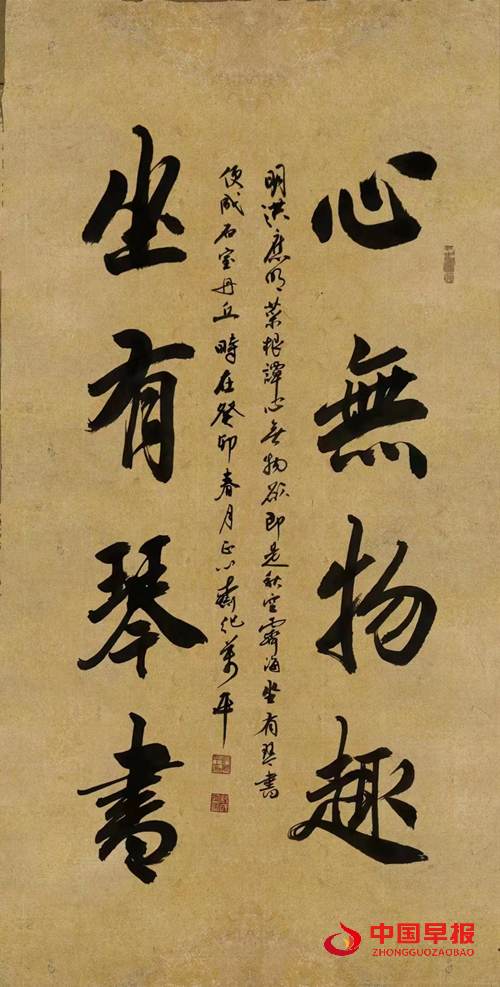 心無物趣
坐有琴書
明洪應明菜根譚心無物欲即是秋空霽海坐有琴書
便成石室丹丘時在癸卯春月正心齋紀萬平
中国早报
ZHONGGUOZAOBAO